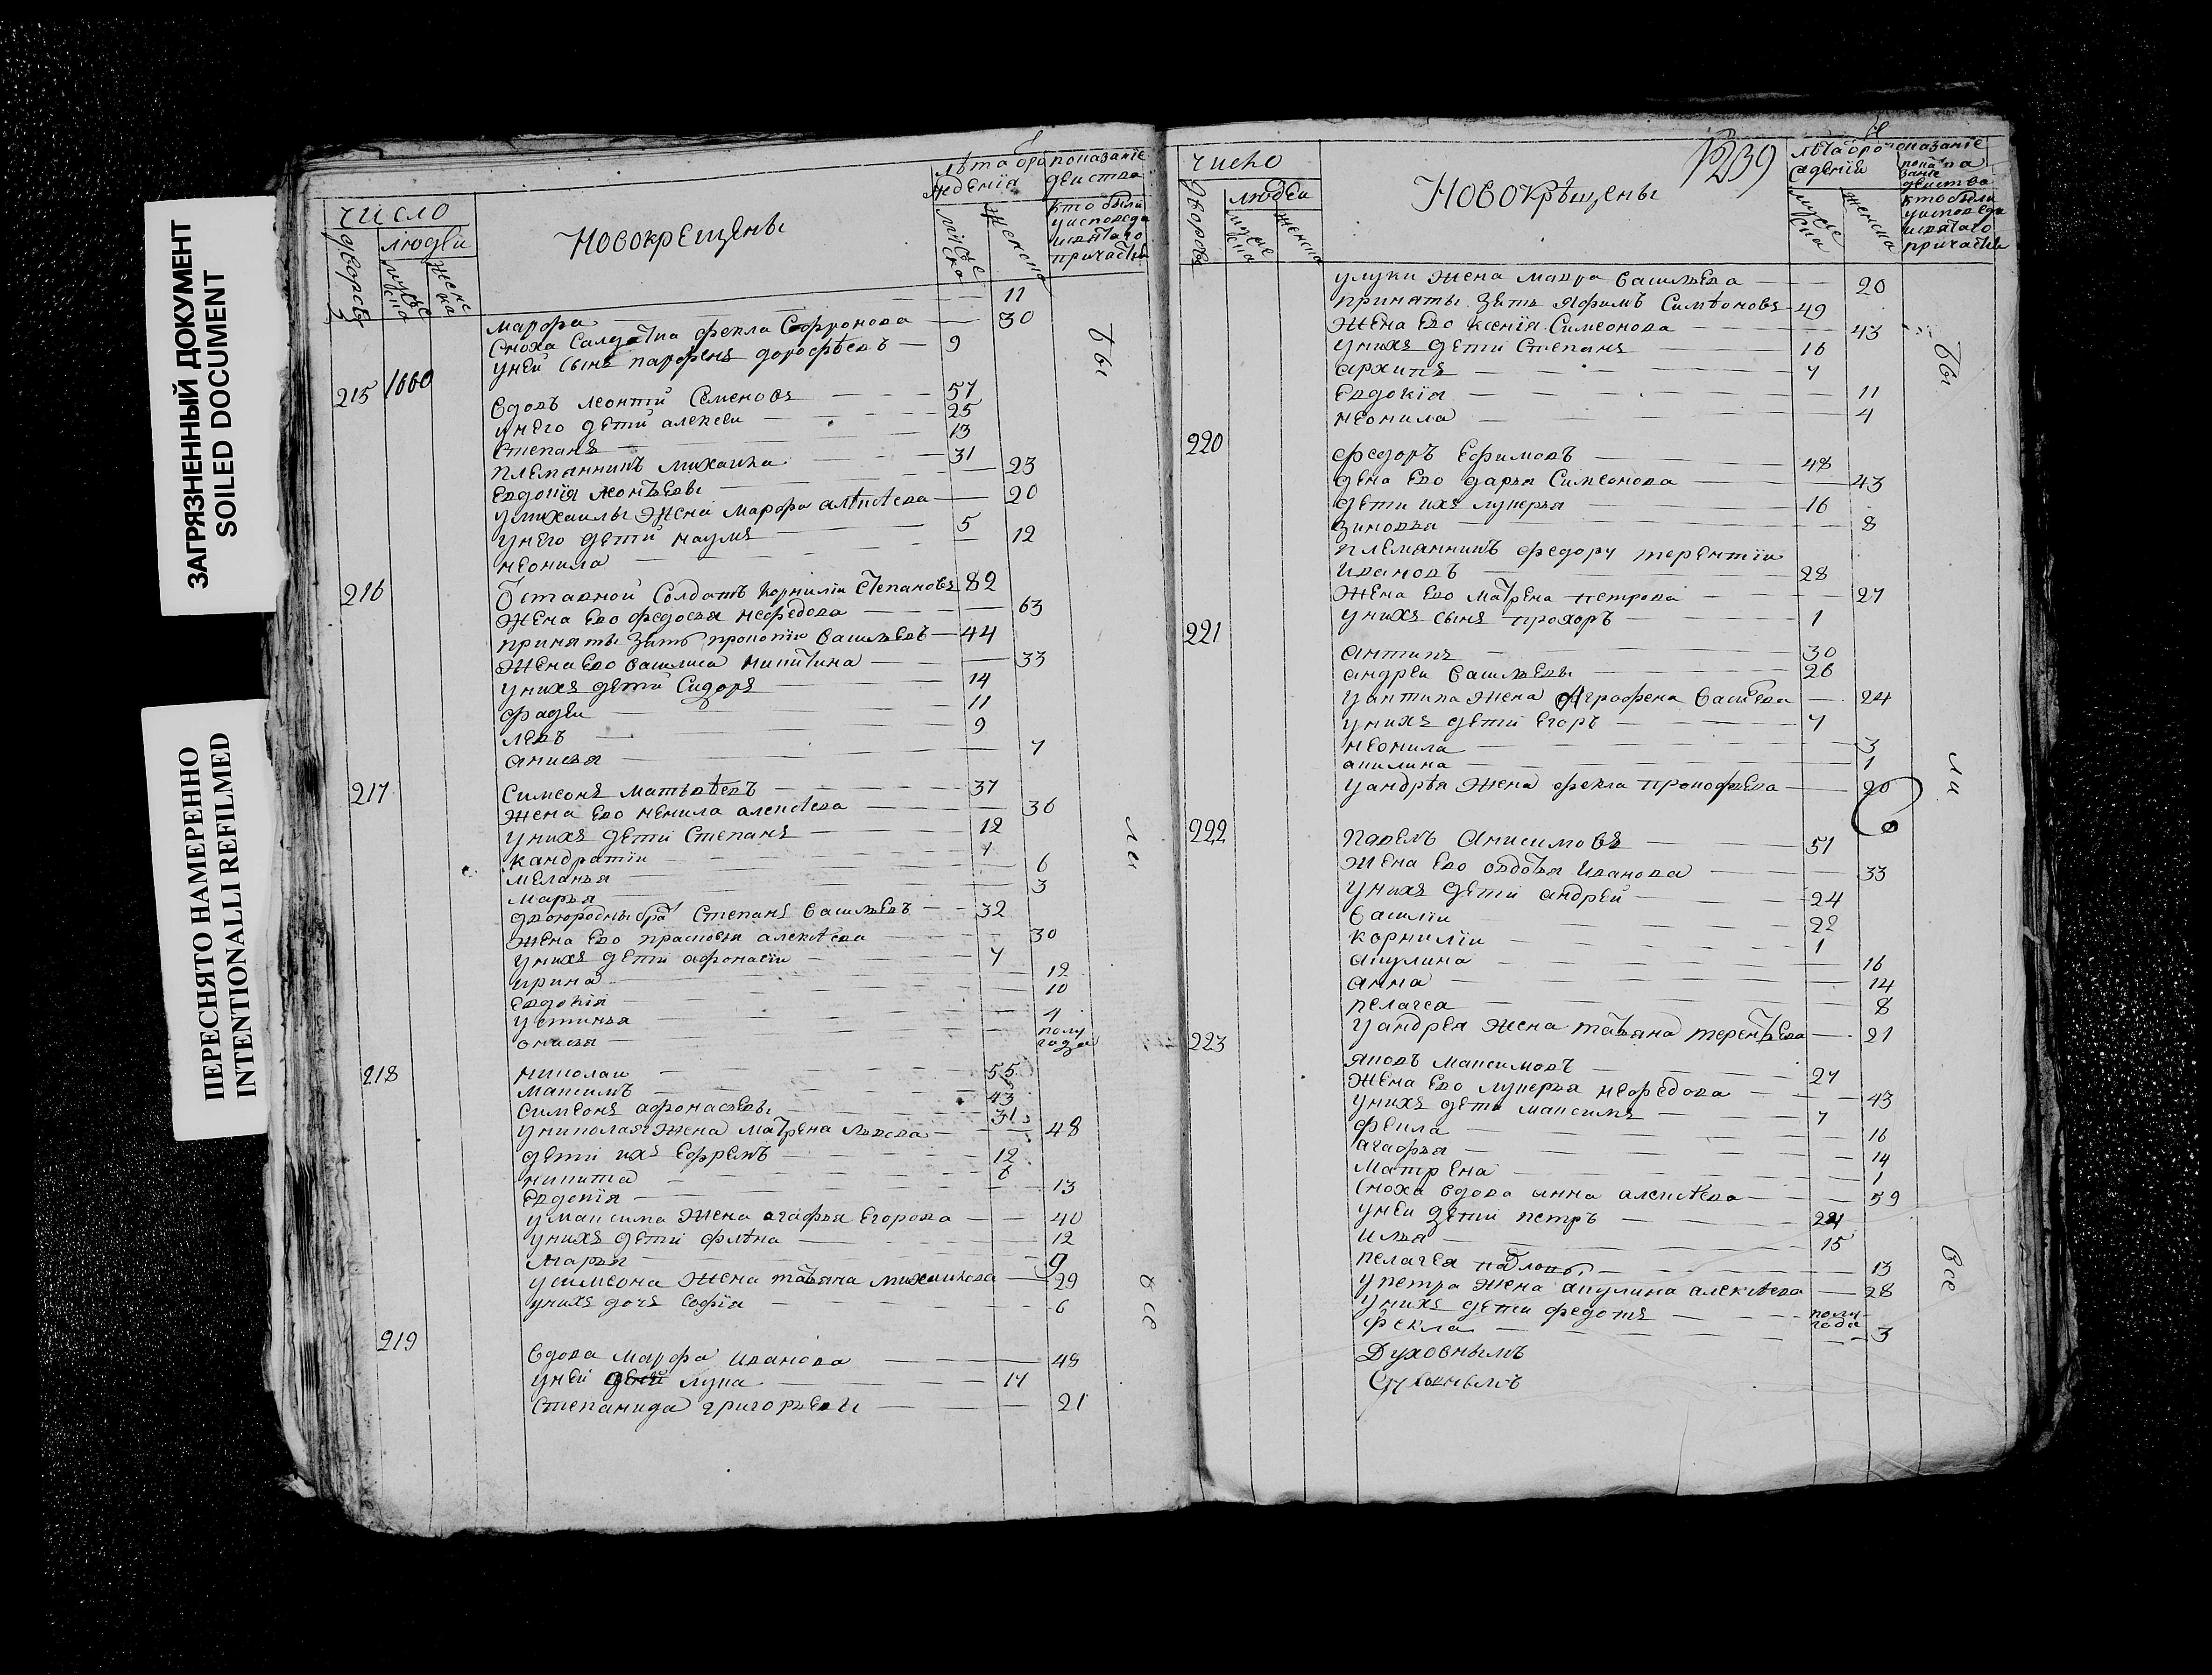 ЗАГРЯЗНЕННЫЙ ДОКУМЕНТ
SOILED DOCUMENT
ПЕРЕСНЯТО НАМЕРЕННО
INTENTIONALLI REFILMED
число
дворовъ
людеи
мужеска
женска
Новокрещены
лѣта рождения
мужеска
женска
показание действа
кто были у исповеди и святаго причастия
марфа — 11
сноха салдатка фекла Софронова — 30
у неи сынъ парфенъ дорофѣевъ — 9
бы
215 1660
вдовъ леонтий Семеновъ — 57
у него дети алексеи — 25
Степанъ — 13
племянникъ михаила — 31
Евдокїя леонтьевы — 23
у михаилы жена марфа алексѣева — 20
у него дети наумъ — 5
неонила — 12
216 Отставной солдатъ корнилий Степановъ 82
жена ево федосья нефедова — 63
принятый зять прокопїи васильевъ — 44
жена ево василиса никитина — 33
у нихъ дети Сидоръ — 14
фадеи — 11
левъ — 9
анисья — 7
217 Симеонъ матвѣевъ — 37
жена ево ненила алексѣева — 36
у нихъ дети Степанъ — 12
кандратїи — 7
меланья — 6
марья — 3
двоюродный братъ Степанъ васильевъ — 32
жена ево прасковья алексѣева — 30
у нихъ дети афонасїи — 7
ирина — 12
евдокїя — 10
устинья — 4
онисья — полу года
ли
218 николаи — 55
максимъ — 43
симеонъ афонасьевы — 31
у николая жена матрена львова — 48
дети ихъ ефремъ — 12
никита — 6
евдокїя — 13
у максима жена агафья егорова — 40
у нихъ дети фіона — 12
марья — 9
у симеона жена татьяна михаилова — 29
у нихъ дочь софїя — 6
все
219 вдова марфа иванова — 48
у неи лука — 17
степанида григорьевы — 21
число
дворовъ
людеи
мужеска
женска
Новокрѣщены
1239
лѣта рождения
мужеска
женска
показание действа
кто были у исповеди и святаго причастия
у луки жена мавра васильева — 20
приняты зять яфимъ Симѣоновъ 49
жена ево ксенїя Симеонова — 43
у нихъ дети Степанъ — 16
архипъ — 7
евдокїя — 11
неонила — 4
бы
220
федоръ Ефимовъ — 48
жена ево дарья Симеонова — 43
дети ихъ лукерья — 16
зиновья — 8
племянникъ федору терентїи
ивановъ — 28
жена ево матрена петрова — 27
у нихъ сынъ прохоръ — 1
221
антипъ — 30
андреи васильевы — 26
у антипа жена Аграфена васильева — 24
у нихъ дети егоръ — 7
неонила — 3
акилина — 1
у андрѣя жена фекла прокофьева — 20
ли
222 павелъ Анисимовъ — 51
жена ево овдотья иванова — 33
у нихъ дети андрей — 24
василїи — 22
корнилїи — 1
акулина — 16
анна — 14
пелагея — 8
у андрея жена татьяна терентьева — 21
223
яковъ максимовъ — 27
жена ево лукерья нефедова — 43
у нихъ дети максимъ — 7
фекла — 16
агафья — 14
матрена — 1
сноха вдова анна алексѣева — 59
у неи дети петръ — 24
илья — 15
пелагея павловы — 13
у петра жена акулина алексѣева — 28
у нихъ дети федотъ — полугода
фекла — 3
все
Духовнымъ